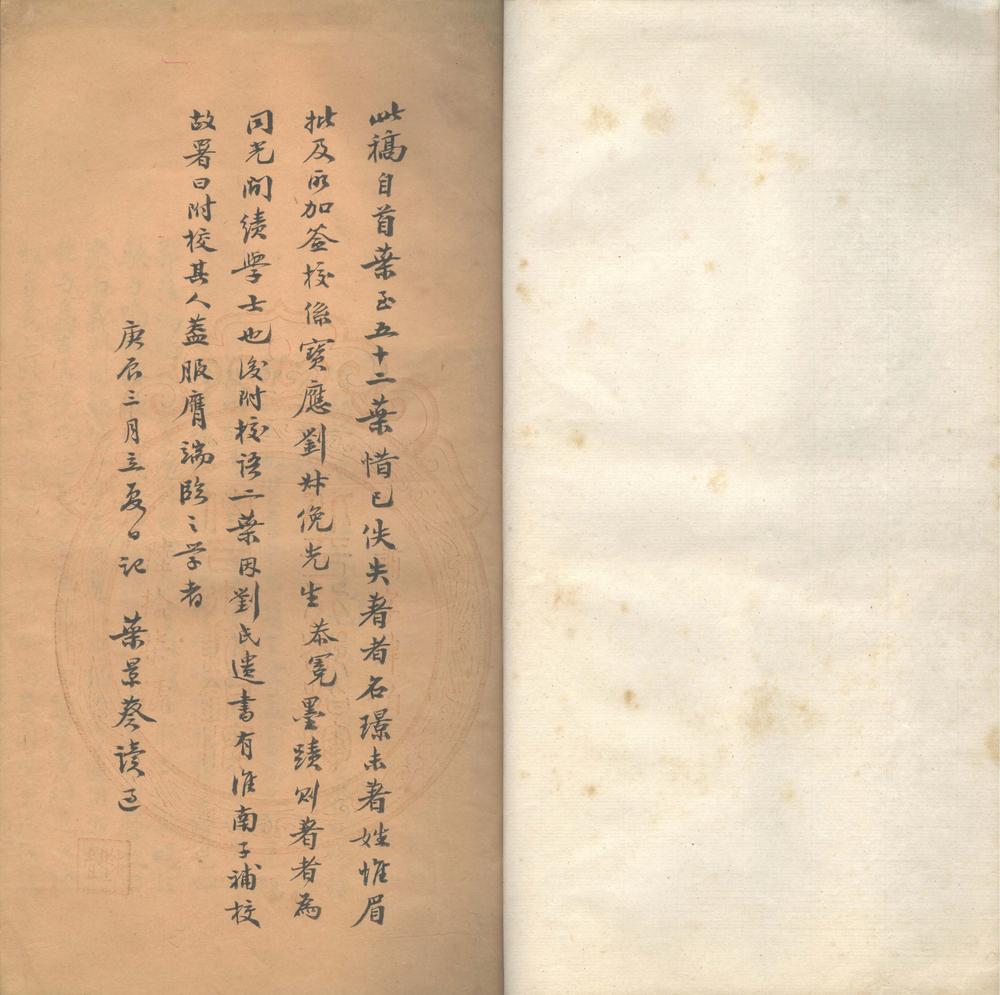 此稿自首葉至五十二葉惜已佚失著者名璟未著姓惟眉
批及所加签校係寶應劉叔俛先生恭冕墨蹟則著者為
同光間績學士也後附校語二葉因劉氏遺書有淮南子補校
故署曰附校其人蓋服膺端臨之学者
庚辰三月立夏日記　葉景葵讀過